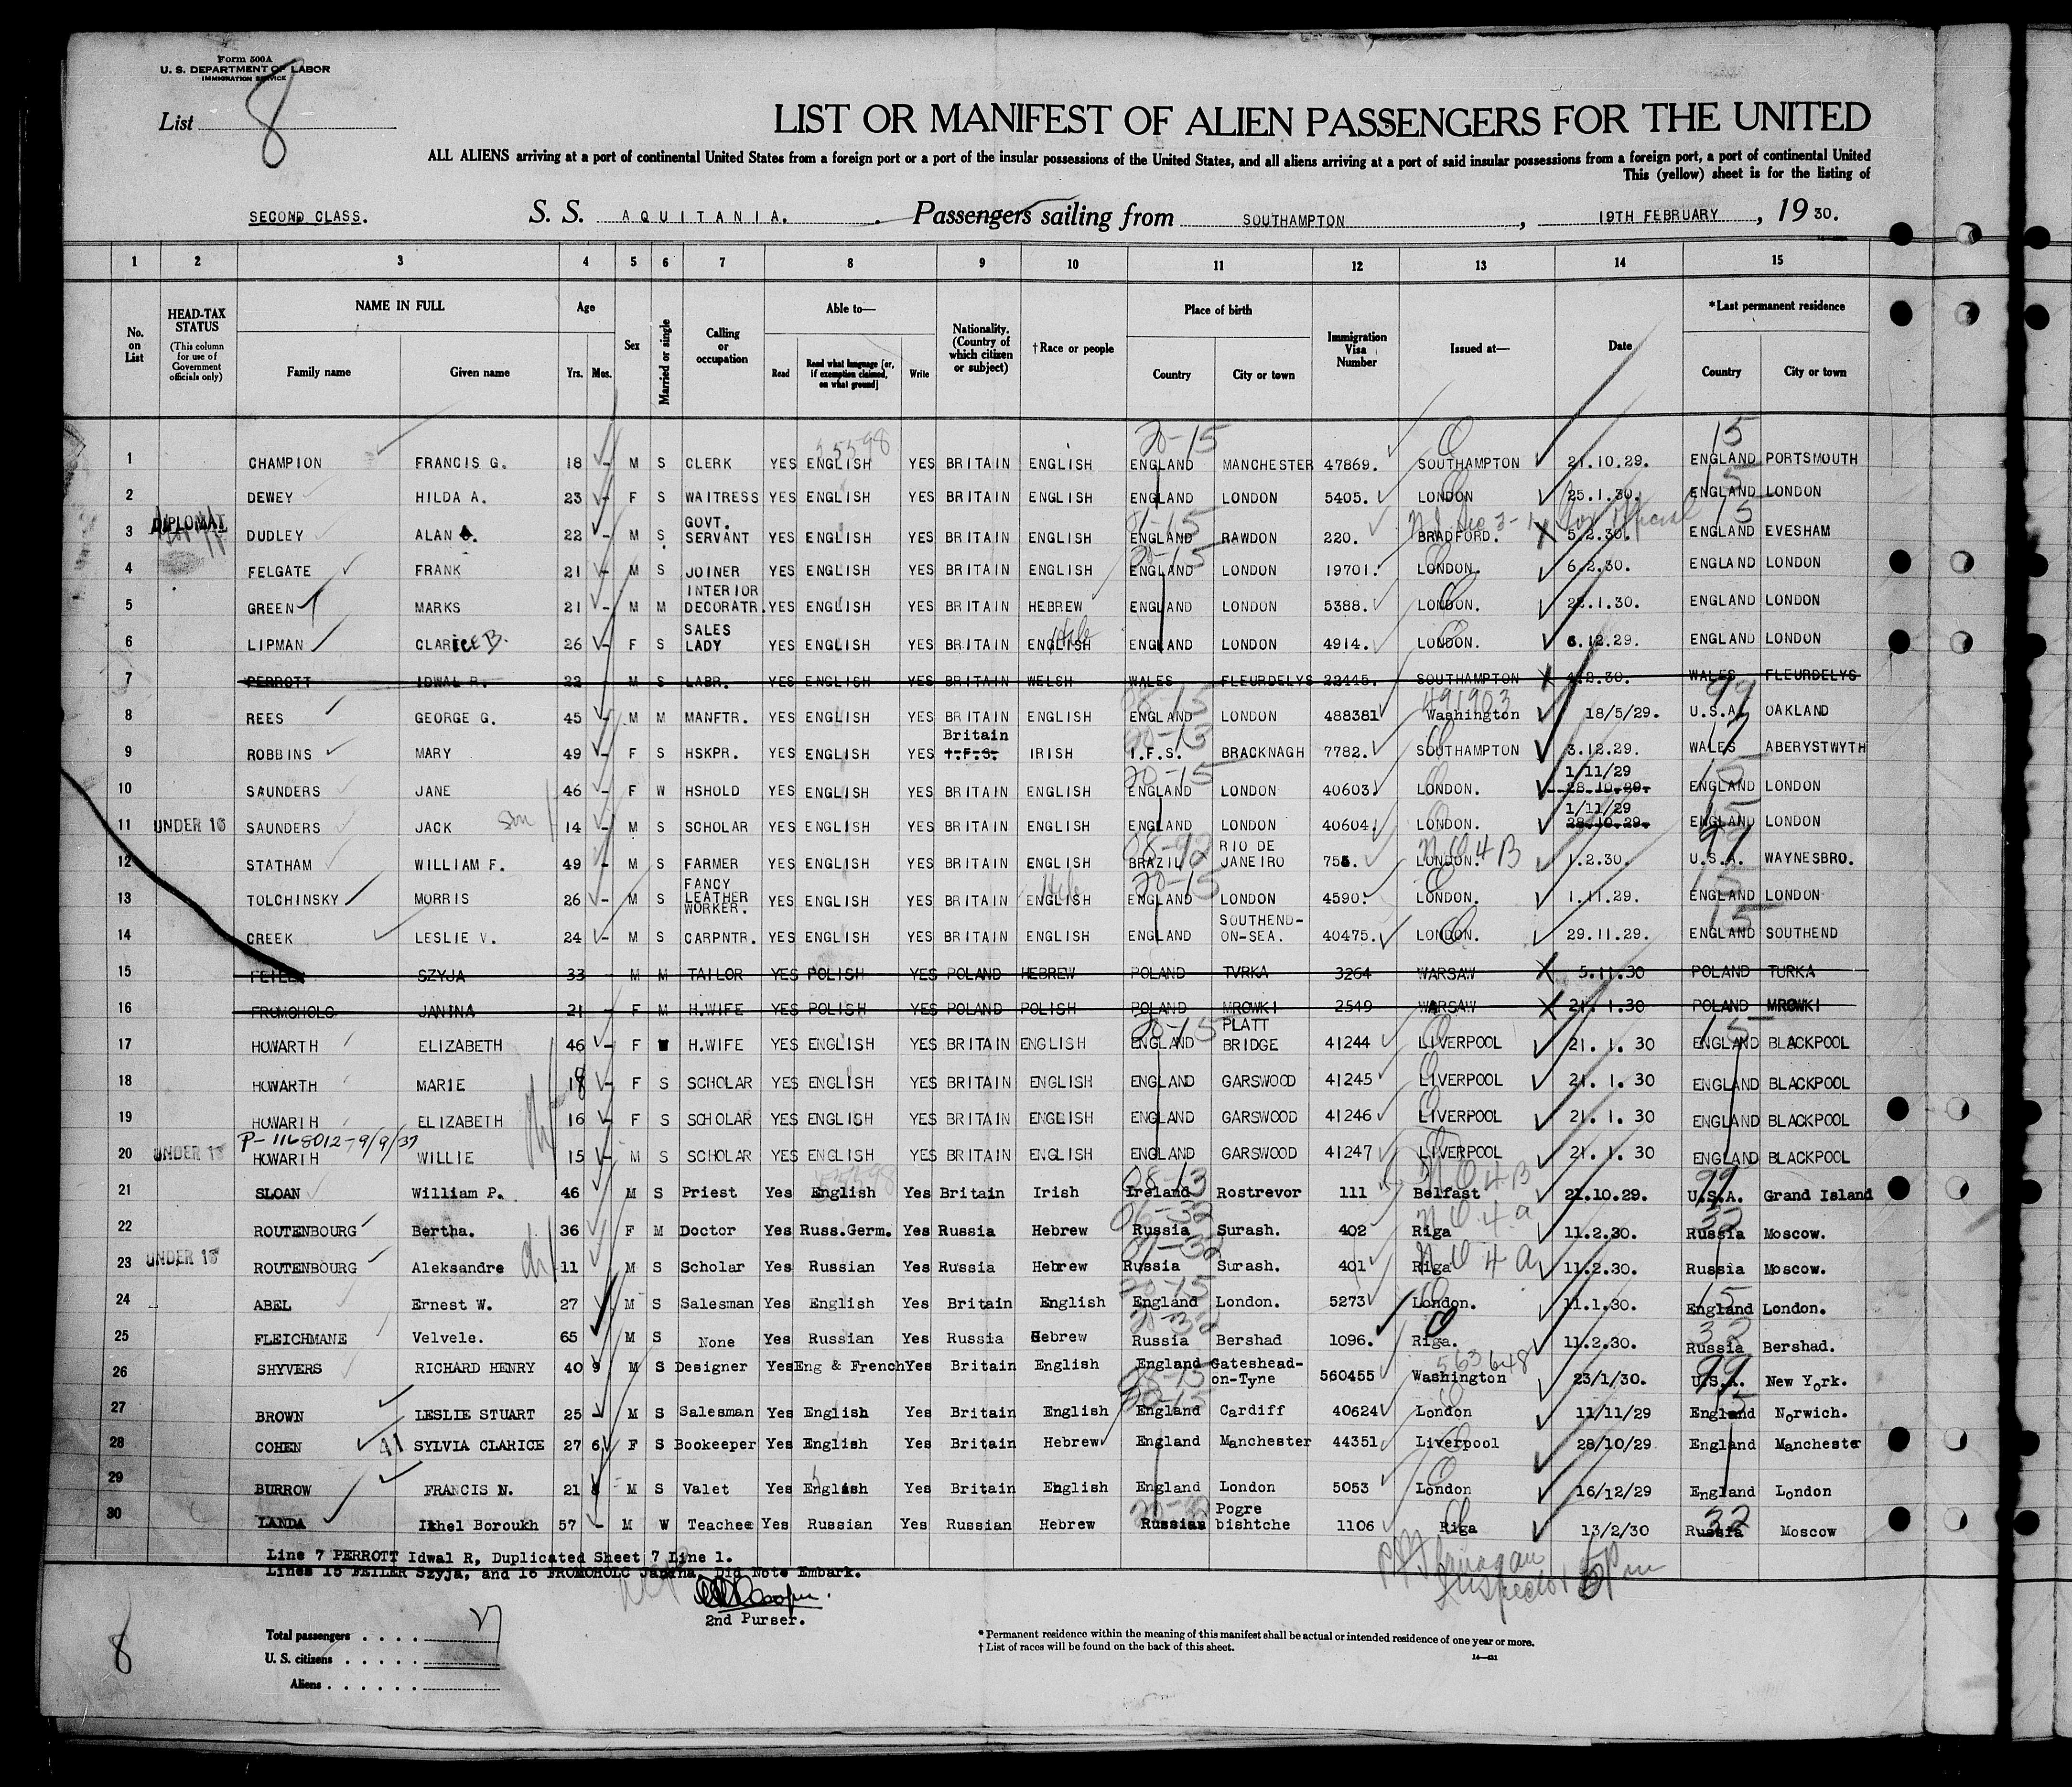 Form 500A
U. S. DEPARTMENT OF LABOR
IMMIGRATION SERVICE
List 8
LIST OR MANIFEST OF ALIEN PASSENGERS FOR THE UNITED
ALL ALIENS arriving at a port of continental United States from a foreign port or a port of the insular possessions of the United States, and all aliens arriving at a port of said insular possessions from a foreign port, a port of continental United
This (yellow) sheet is for the listing of
SECOND CLASS. S. S. AQUITANIA. Passengers sailing from SOUTHAMPTON, 19TH FEBRUARY, 1930.
1 2 3 4 5 6 7 8 9 10 11 12 13 14 15
No. on List HEAD-TAX STATUS (This column for use of Government officials only) NAME IN FULL Family name Given name Age Yrs. Mos. Sex Married or single Calling or occupation Able to— Read Read what language [or, if exemption claimed, on what ground] Write Nationality. (Country of which citizen or subject) †Race or people Place of birth Country City or town Immigration Visa Number Issued at— Date *Last permanent residence Country City or town
1 CHAMPION FRANCIS G. 18 - M S CLERK YES ENGLISH YES BRITAIN ENGLISH ENGLAND MANCHESTER 47869. SOUTHAMPTON 21.10.29. ENGLAND PORTSMOUTH
2 DEWEY HILDA A. 23 - F S WAITRESS YES ENGLISH YES BRITAIN ENGLISH ENGLAND LONDON 5405. LONDON 25.1.30. ENGLAND LONDON
3 DIPLOMAT DUDLEY ALAN 22 - M S GOVT. SERVANT YES ENGLISH YES BRITAIN ENGLISH ENGLAND RAWDON 220. BRADFORD. 5.2.30. ENGLAND EVESHAM
4 FELGATE FRANK 21 - M S JOINER YES ENGLISH YES BRITAIN ENGLISH ENGLAND LONDON 19701. LONDON. 6.2.30. ENGLAND LONDON
5 GREEN MARKS 21 - M M INTERIOR DECORATR. YES ENGLISH YES BRITAIN HEBREW ENGLAND LONDON 5388. LONDON. 28.1.30. ENGLAND LONDON
6 LIPMAN CLARICE B. 26 - F S SALES LADY YES ENGLISH YES BRITAIN ENGLISH ENGLAND LONDON 4914. LONDON. 6.12.29. ENGLAND LONDON
7 PERROTT IDWAL R. 22 - M S LABR. YES ENGLISH YES BRITAIN WELSH WALES FLEURDELYS 22445. SOUTHAMPTON 4.2.30. WALES FLEURDELYS
8 REES GEORGE G. 45 - M M MANFTR. YES ENGLISH YES BRITAIN ENGLISH ENGLAND LONDON 488381 491903 Washington 18/5/29. U.S.A. OAKLAND
9 ROBBINS MARY 49 - F S HSKPR. YES ENGLISH YES Britain I.F.S. IRISH I.F.S. BRACKNAGH 7782. SOUTHAMPTON 3.12.29. WALES ABERYSTWYTH
10 SAUNDERS JANE 46 - F W HSHOLD YES ENGLISH YES BRITAIN ENGLISH ENGLAND LONDON 40603. LONDON. 1/11/29 28.10.29. ENGLAND LONDON
11 UNDER 16 SAUNDERS JACK son 14 - M S SCHOLAR YES ENGLISH YES BRITAIN ENGLISH ENGLAND LONDON 40604. LONDON. 1/11/29 28.10.29. ENGLAND LONDON
12 STATHAM WILLIAM F. 49 - M S FARMER YES ENGLISH YES BRITAIN ENGLISH BRAZIL RIO DE JANEIRO 755. LONDON. 1.2.30. U.S.A. WAYNESBRO.
13 TOLCHINSKY MORRIS 26 - M S FANCY LEATHER WORKER. YES ENGLISH YES BRITAIN ENGLISH ENGLAND LONDON 4590. LONDON. 1.11.29. ENGLAND LONDON
14 CREEK LESLIE V. 24 - M S CARPNTR. YES ENGLISH YES BRITAIN ENGLISH ENGLAND SOUTHEND-ON-SEA. 40475. LONDON. 29.11.29. ENGLAND SOUTHEND
15 FEILER SZYJA 33 - M M TAILOR YES POLISH YES POLAND HEBREW POLAND TVRKA 3264 WARSAW 5.11.30 POLAND TURKA
16 FROMOHOLC JANINA 21 - F M H.WIFE YES POLISH YES POLAND POLISH POLAND MROWKI 2549 WARSAW 21.1.30 POLAND MROWKI
17 HOWARTH ELIZABETH 46 - F W H.WIFE YES ENGLISH YES BRITAIN ENGLISH ENGLAND PLATT BRIDGE 41244 LIVERPOOL 21. 1. 30 ENGLAND BLACKPOOL
18 HOWARTH MARIE 18 - F S SCHOLAR YES ENGLISH YES BRITAIN ENGLISH ENGLAND GARSWOOD 41245 LIVERPOOL 21. 1. 30 ENGLAND BLACKPOOL
19 HOWARTH ELIZABETH 16 - F S SCHOLAR YES ENGLISH YES BRITAIN ENGLISH ENGLAND GARSWOOD 41246 LIVERPOOL 21. 1. 30 ENGLAND BLACKPOOL
P-1168012-9/9/37
20 UNDER 16 HOWARTH WILLIE 15 - M S SCHOLAR YES ENGLISH YES BRITAIN ENGLISH ENGLAND GARSWOOD 41247 LIVERPOOL 21. 1. 30 ENGLAND BLACKPOOL
21 SLOAN William P. 46 M S Priest Yes English Yes Britain Irish Ireland Rostrevor 111 Belfast 21.10.29. U.S.A. Grand Island
22 ROUTENBOURG Bertha. 36 F M Doctor Yes Russ.Germ. Yes Russia Hebrew Russia Surash. 402 Riga 11.2.30. Russia Moscow.
23 UNDER 16 ROUTENBOURG Aleksandre 11 M S Scholar Yes Russian Yes Russia Hebrew Russia Surash. 401 Riga 11.2.30. Russia Moscow.
24 ABEL Ernest W. 27 M S Salesman Yes English Yes Britain English England London. 5273 London. 11.1.30. England London.
25 FLEICHMANE Velvele. 65 M S None Yes Russian Yes Russia Hebrew Russia Bershad 1096. Riga. 11.2.30. Russia Bershad.
26 SHYVERS RICHARD HENRY 40 9 M S Designer Yes Eng & French Yes Britain English England Gateshead-on-Tyne 560455 563648 Washington 23/1/30. U.S.A. New York.
27 BROWN LESLIE STUART 25 - M S Salesman Yes English Yes Britain English England Cardiff 40624 London 11/11/29 England Norwich.
28 COHEN SYLVIA CLARICE 27 6 F S Bookeeper Yes English Yes Britain Hebrew England Manchester 44351 Liverpool 28/10/29 England Mancheste
29 BURROW FRANCIS N. 21 8 M S Valet Yes English Yes Britain English England London 5053 London 16/12/29 England London
30 LANDA Ikhel Boroukh 57 - M W Teachee Yes Russian Yes Russian Hebrew Russian Pogre bishtche 1106 Riga 13/2/30 Russia Moscow
Line 7 PERROTT Idwal R, Duplicated Sheet 7 Line 1.
Lines 15 FEILER Szyja, and 16 FROMOHOLC Janina, Did Note Embark.
2nd Purser.
Inspector
Total passengers
U. S. citizens
Aliens
8
* Permanent residence within the meaning of this manifest shall be actual or intended residence of one year or more.
† List of races will be found on the back of this sheet.
14—431